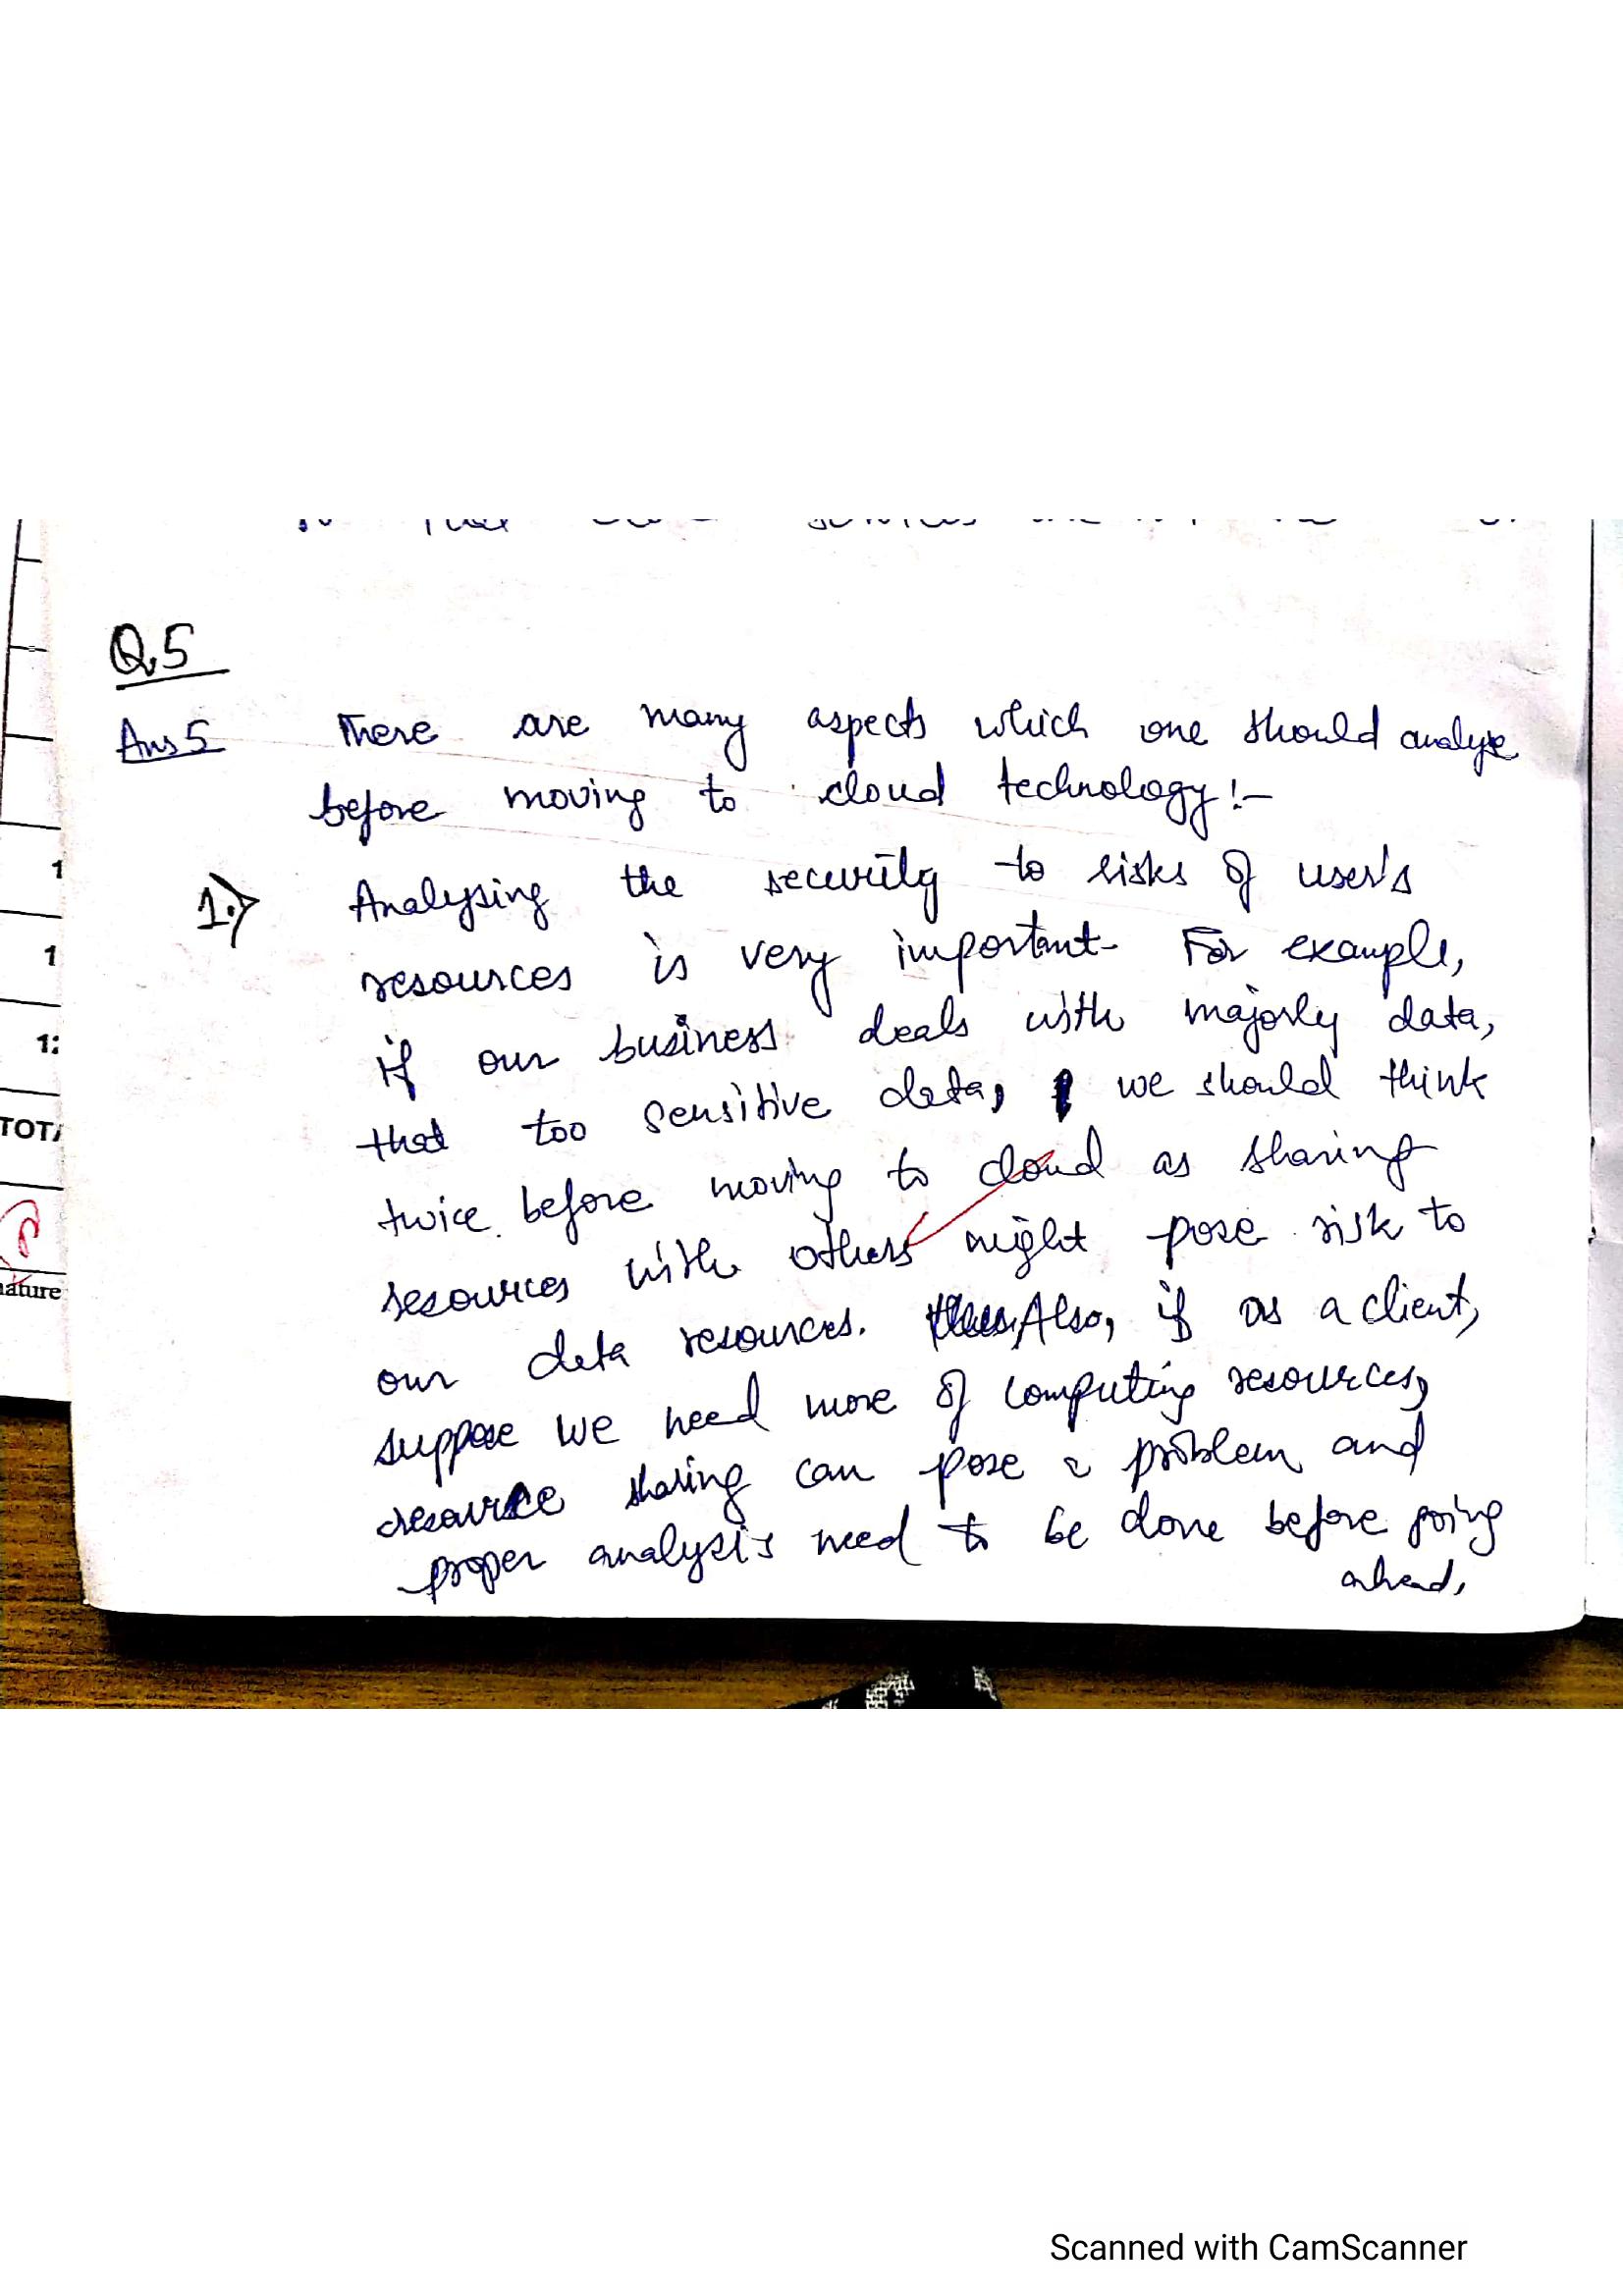 Q.5
Ans 5 There are many aspects which one should analyse
before moving to cloud technology:-
1.) Analysing the security to risks of user's
resources is very important. For example,
if our business deals with majorly data,
that too sensitive data, we should think
twice before moving to cloud as sharing
resources with others might pose risk to
our data resources. Also, if as a client,
suppose we need more of computing resources,
resource sharing can pose a problem and
proper analysis need to be done before going
ahead.
1
1
12
TOTA
nature
Scanned with CamScanner